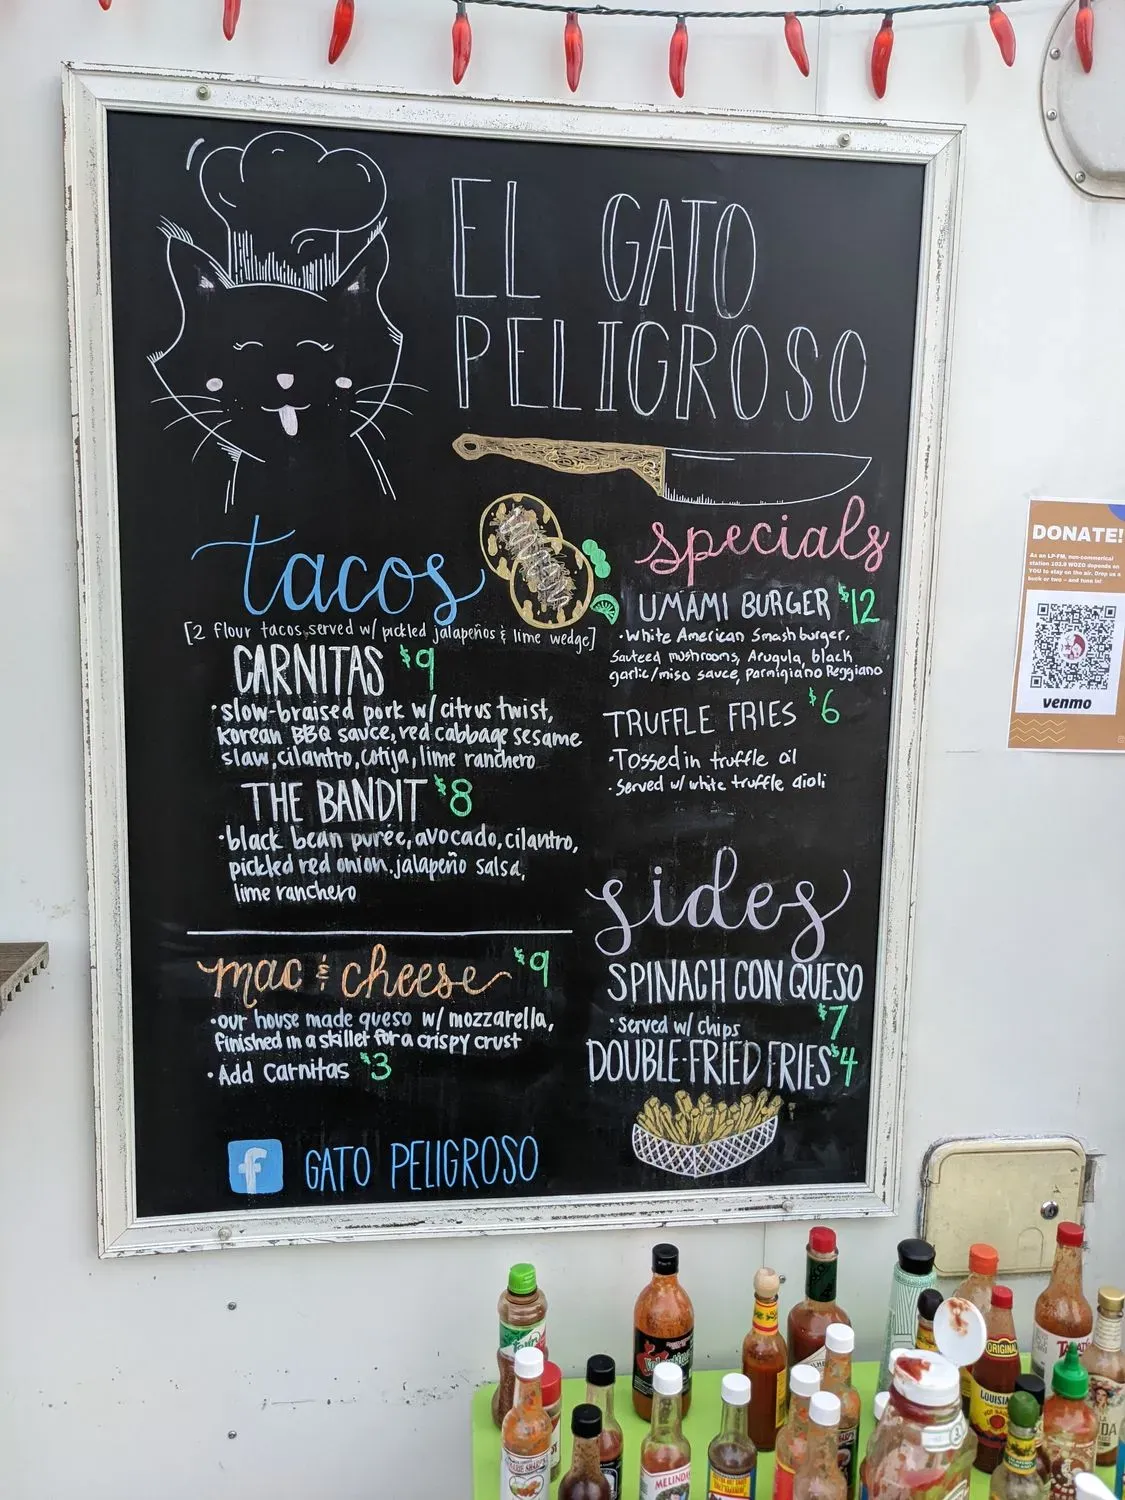 EL GATO
PELIGROSO
tacos
[2 flour tacos, served w/ pickled jalapeños & lime wedge]
CARNITAS $9
• slow-braised pork w/ citrus twist,
Korean BBQ sauce, red cabbage sesame
slaw, cilantro, cotija, lime ranchero
THE BANDIT $8
• black bean purée, avocado, cilantro,
pickled red onion, jalapeño salsa,
lime ranchero
mac & cheese $9
• our house made queso w/ mozzarella,
finished in a skillet for a crispy crust
• Add Carnitas $3
f GATO PELIGROSO
specials
UMAMI BURGER $12
• White American Smashburger,
Sauteed mushrooms, Arugula, black
garlic/miso sauce, parmigiano Reggiano
TRUFFLE FRIES $6
• Tossed in truffle oil
• Served w/ white truffle aioli
sides
SPINACH CON QUESO
$7
• served w/ chips
DOUBLE-FRIED FRIES $4
DONATE!
As an LP-FM, non-commerical
station 103.9 WOZO depends on
YOU to stay on the air. Drop us a
buck or two – and tune in!
venmo
ORIGINAL
LOUISIA
MELINDA